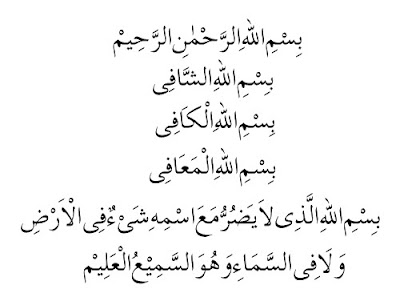 بِسْمِ اللهِ الرَّحْمٰنِ الرَّحِيْمْ
بِسْمِ اللهِ الشَّافِى
بِسْمِ اللهِ الْكَافِى
بِسْمِ اللهِ الْمَعَافِى
بِسْمِ اللهِ الَّذِى لاَ يَضُرُّ مَعَ اسْمِهِ شَىْءٌ فِى الْاَرْضِ
وَ لَا فِى السَّمَاءِ وَ هُوَ السَّمِيْعُ الْعَلِيْمْ